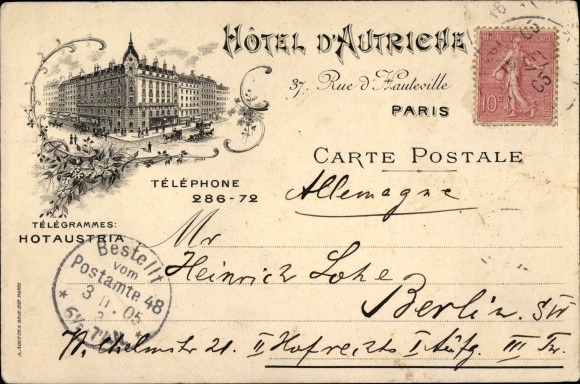 HÔTEL D'AUTRICHE
37, Rue d'Hauteville
PARIS
10c
CARTE POSTALE
TÉLÉPHONE
286-72
TÉLÉGRAMMES:
HOTAUSTRIA
Allemagne
Mr
Heinrich Lohe
Berlin. SW
Bestellt
vom
Postamte 48
3 11 05
Wilhelmstr 21. II Hof rechts I Aufg. III Tr.